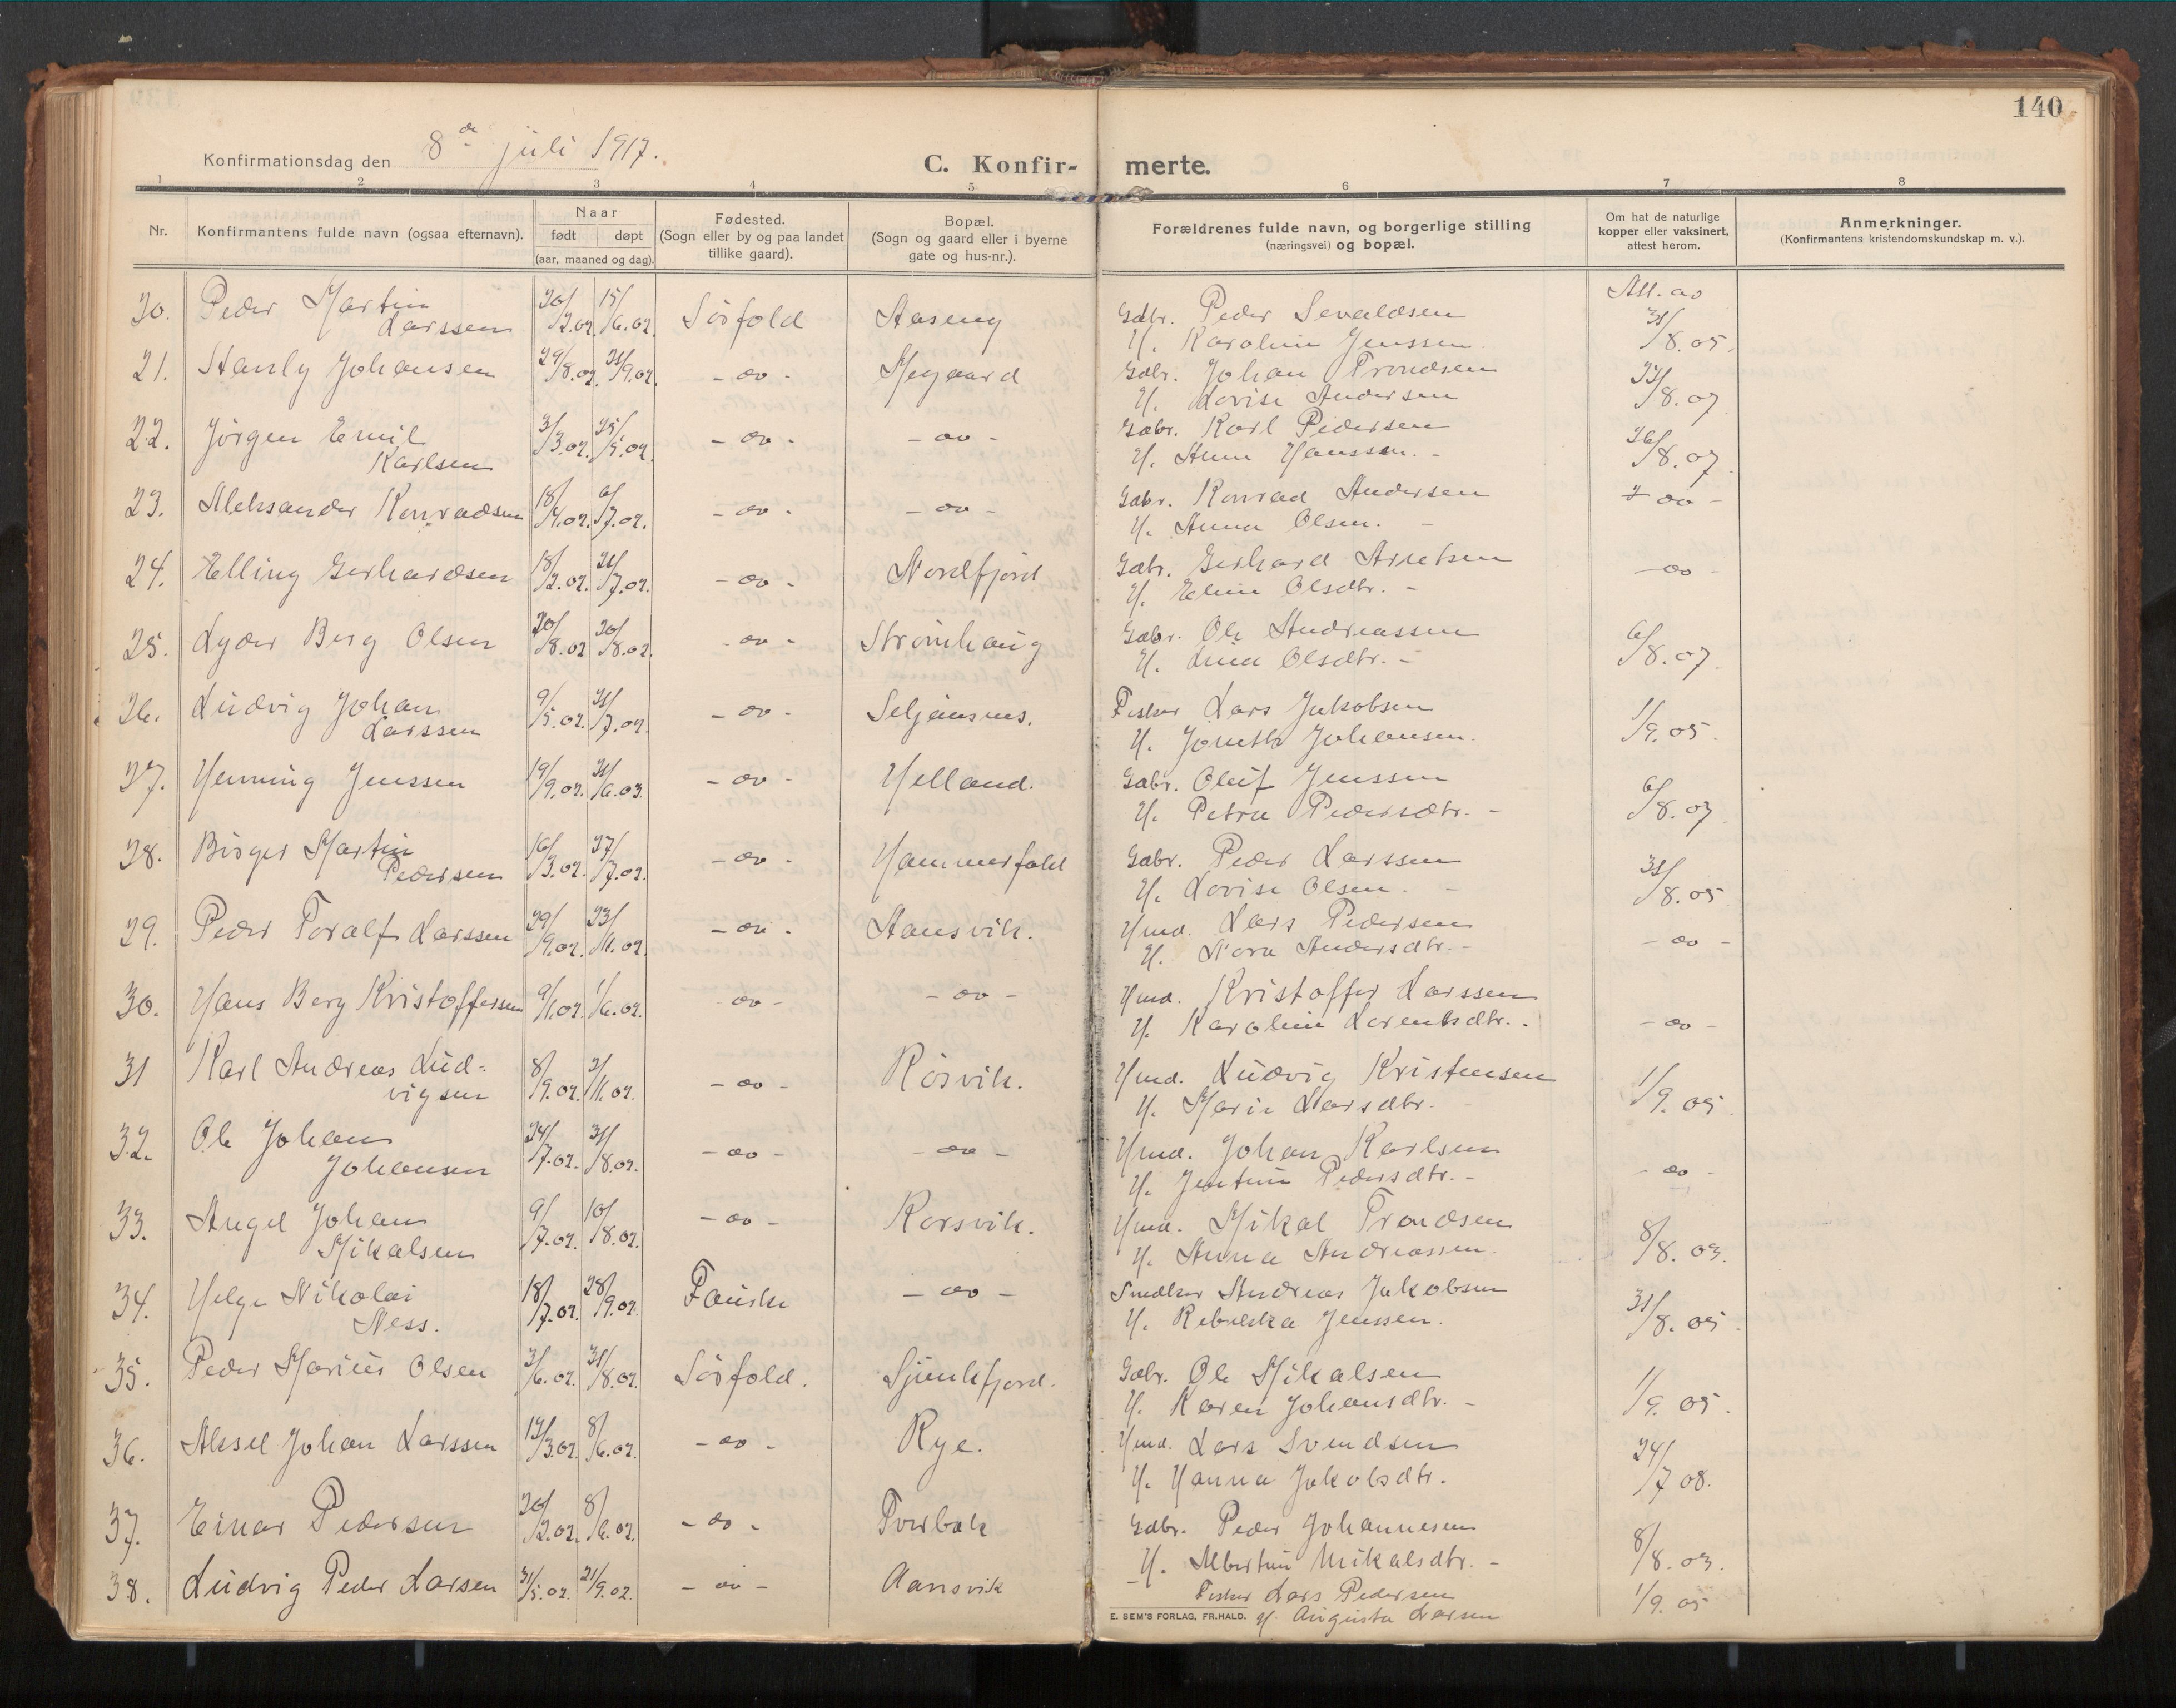 140
Konfirmationsdag den 8de juli 1917.
C. Konfir- merte.
1 2 3 4 5 6 7 8
Nr.
Konfirmantens fulde navn (ogsaa efternavn).
Naar
født døpt
(aar, maaned og dag).
Fødested.
(Sogn eller by og paa landet
tillike gaard).
Bopæl.
(Sogn og gaard eller i byerne
gate og hus-nr.).
Forældrenes fulde navn, og borgerlige stilling
(næringsvei) og bopæl.
Om hat de naturlige
kopper eller vaksinert,
attest herom.
Anmerkninger.
(Konfirmantens kristendomskundskap m. v.).
20. Peder Martin Larssen 20/2.02. 15/6.02. Sörfold Aaseng Gdbr. Peder Sevaldsen
H. Karoline Jenssen. Att. av 31/8.05.
21. Stanly Johansen 29/8.02. 21/9.02. - do - Megaard Gdbr. Johan Trondsen
H. Lovise Andersen 23/8.07
22. Jörgen Emil Karlsen 3/3.02. 25/5.02. - do - - do - Gdbr. Karl Pedersen
H. Anne Hanssen. - 26/8.07.
23. Aleksander Konradsen 18/4.02. 6/7.02. - do - - do - Gdbr. Konrad Andersen
H. Anna Olsen. - - do -
24. Elling Gerhardsen 18/2.02. 21/7.02. - do - Nordfjord Gdbr. Gerhard Arntsen
H. Eline Olsdtr. - - do -
25. Lyder Berg Olsen 20/8.02 30/8.02. - do - Strömhaug Gdbr. Ole Andreassen
H. Lina Olsdtr. - 6/8.07.
26. Ludvig Johan Larssen 9/5.02. 21/7.02. - do - Seljeasnes. Fisker Lars Jakobsen
H. Jonetta Johansen. 1/9.05.
27. Henning Jenssen 19/9.02. 21/6.03. - do - Helland. Gdbr. Oluf Jenssen
H. Petra Pedersdtr. - 6/8.07
28. Birger Martin Pedersen 16/3.02. 27/7.02. - do - Hammerfald Gdbr. Peder Larssen
H. Lovise Olsen. - 31/8.05
29. Peder Toralf Larssen 29/9.02. 23/11.02. - do - Aansvik. Hmd. Lars Pedersen
H. Nora Andersdtr. - - do -
30. Hans Berg Kristoffersen 9/1.02. 1/6.02. - do - - do - Hmd. Kristoffer Larssen
H. Karoline Lorentsdtr. - - do -
31 Karl Andreas Lud-
vigsen 8/9.02. 2/11.02. - do - Rösvik. Hmd. Ludvig Kristensen
H. Marie Larsdtr. 1/9.05
32. Ole Johan Johansen 24/7.02. 31/8.02. - do - - do - Hmd. Johan Karlsen
H. Jentine Pedersdtr. - - do -
33. Angel Johan Mikalsen 9/7.02. 10/8.02. - do - Korsvik. Hmd. Mikal Trondsen
H. Anna Andreassen. 8/8.03.
34. Helge Nikolai Ness. 18/7.02. 28/9.02. Fauske - do - Snedker Andreas Jakobsen
H. Rebekka Jenssen. 31/8.05.
35. Peder Marius Olsen 3/6.02. 31/8.02. Sörfold. Sjunkfjord. Gdbr. Ole Mikalsen
H. Karen Johansdtr. - 1/9.05.
36. Aksel Johan Larssen 12/3.02. 8/6.02. - do - Rye. Hmd. Lars Svendsen
H. Hanna Jakobsdtr. 24/7 08.
37. Einar Pedersen 20/2.02. 8/6.02. - do - Tverbak Gdbr. Peder Johannesen
H. Albertine Mikalsdtr. - 8/8.03.
38. Ludvig Peder Larsen 31/5.02. 21/9.02. - do - Aansvik Fisker Lars Pedersen
H. Augusta Larsen 1/9.05
E. SEM'S FORLAG, FR.HALD.